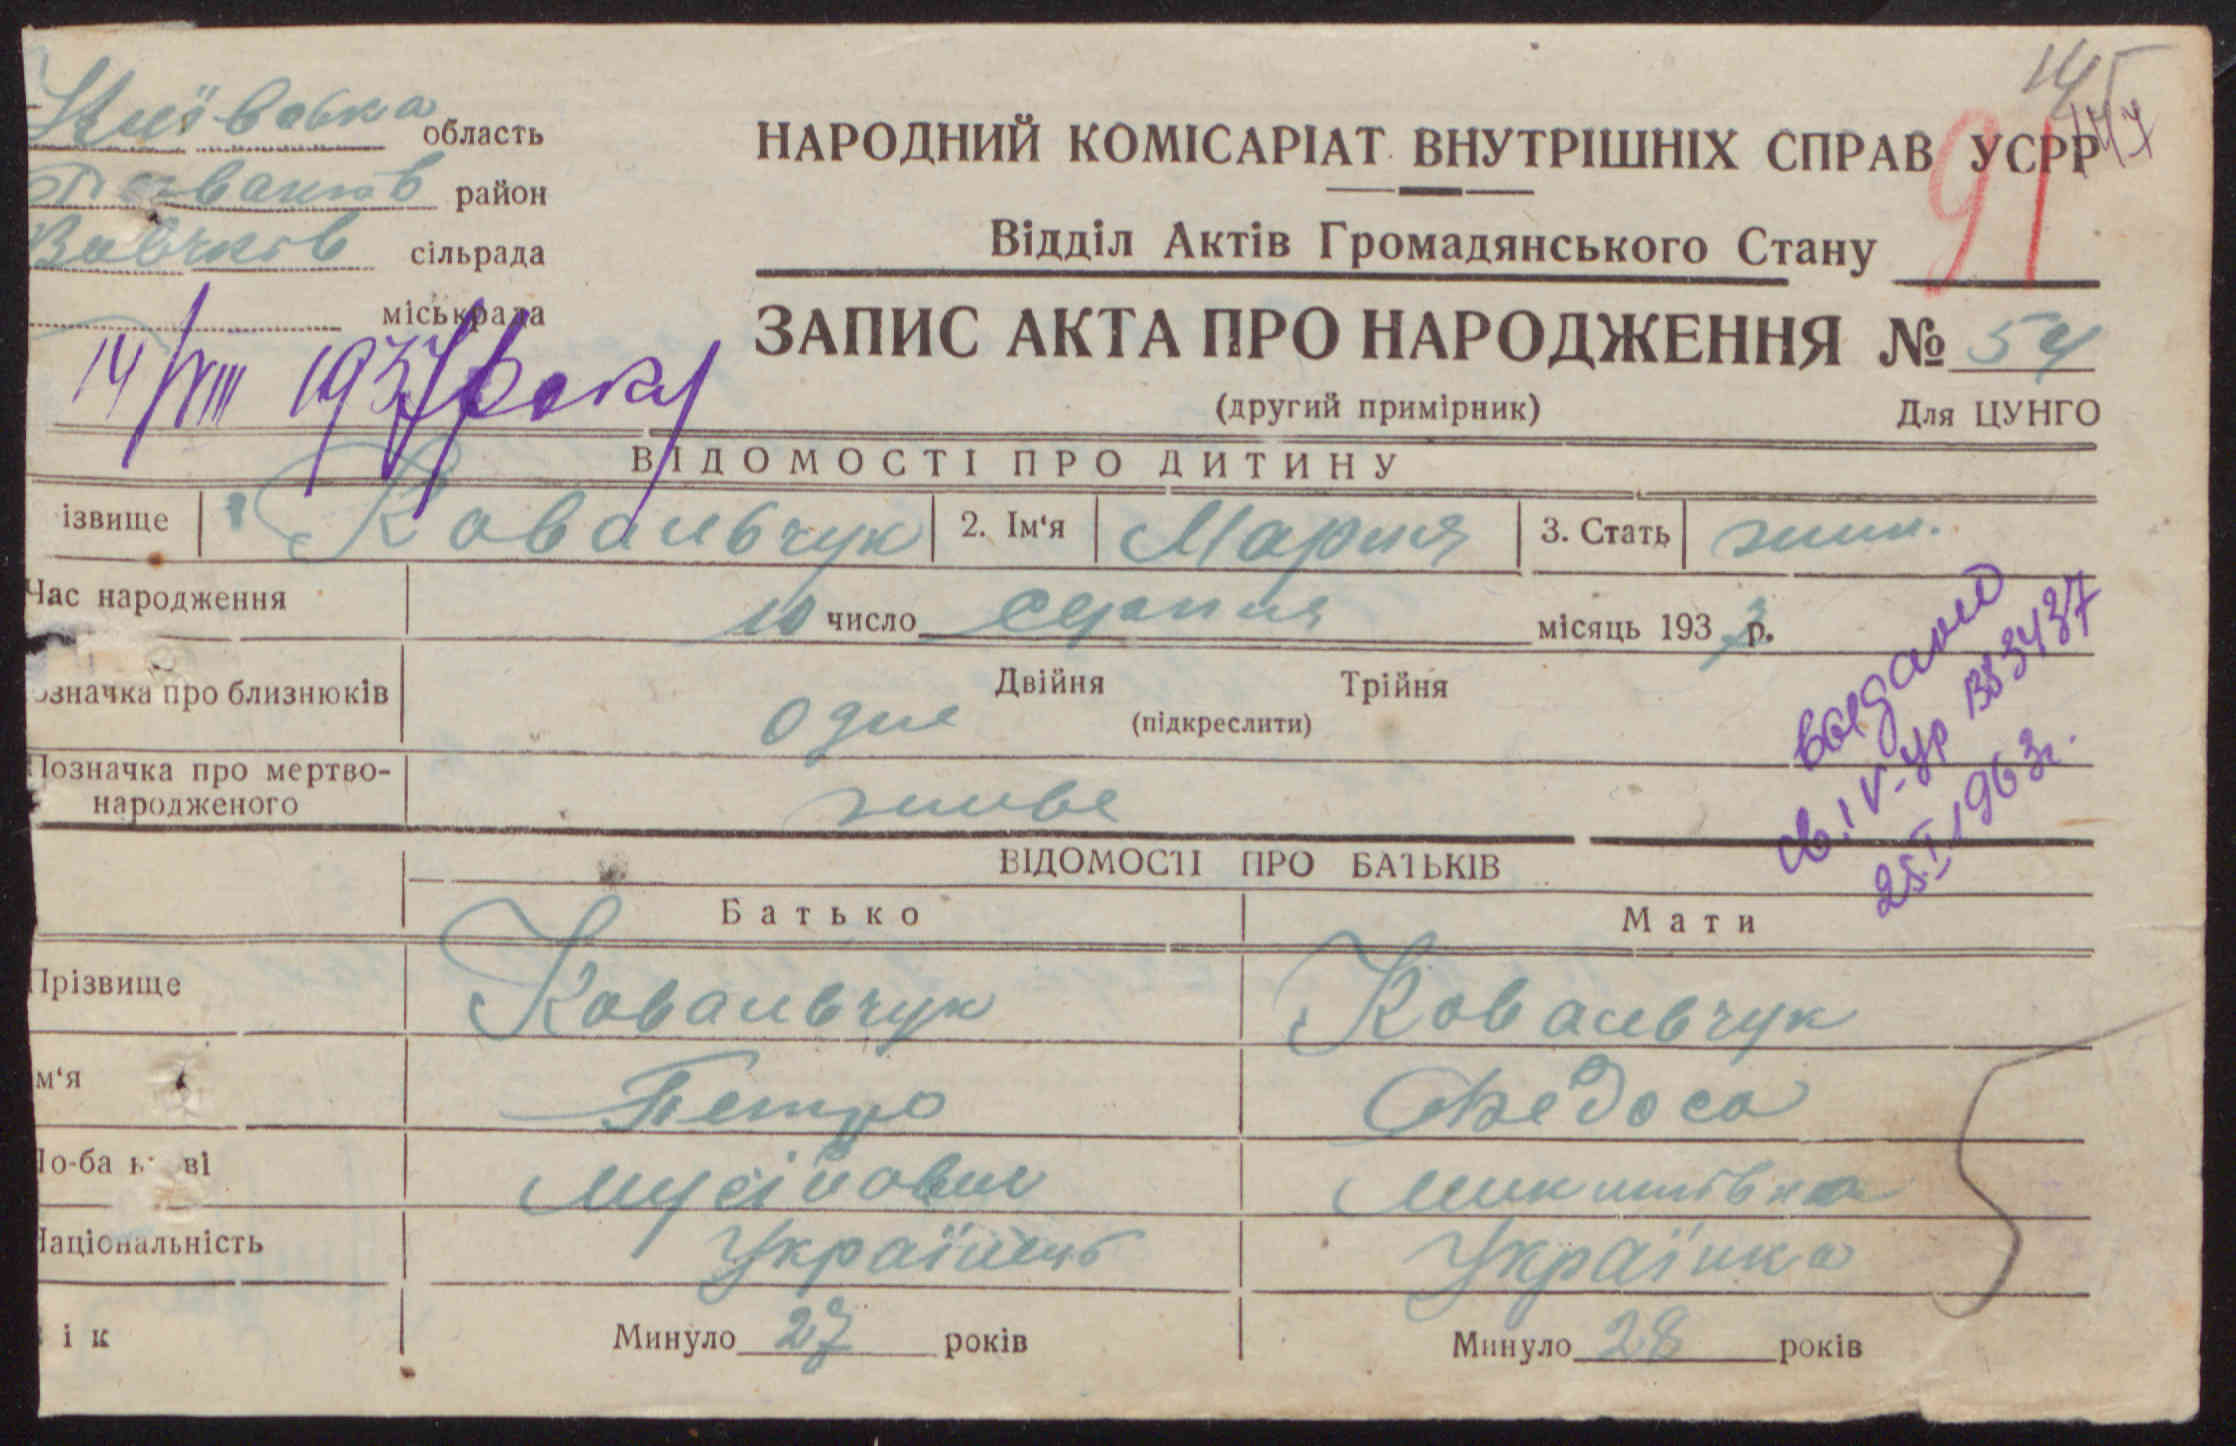 Київська область
район
сільрада
міськрада
14/VIII 1937 року
НАРОДНИЙ КОМІСАРІАТ ВНУТРІШНІХ СПРАВ УСРР
91
Відділ Актів Громадянського Стану
ЗАПИС АКТА ПРО НАРОДЖЕННЯ № 54
(другий примірник) Для ЦУНГО
ВІДОМОСТІ ПРО ДИТИНУ
ізвище Ковальчук 2. Ім'я Мария 3. Стать жин.
Час народження 10 число серпня місяць 193 р.
означка про близнюків одне Двійня Трійня
(підкреслити)
Позначка про мертво-
народженого живе
выдано
св. IV-УР 83437
25.I 1963г.
ВІДОМОСТІ ПРО БАТЬКІВ
Батько Мати
Прізвище Ковальчук Ковальчук
м'я Петро Федоса
По-ба ві Мусійович Микитівна
Національність Українець Українка
ік Минуло 27 років Минуло 28 років